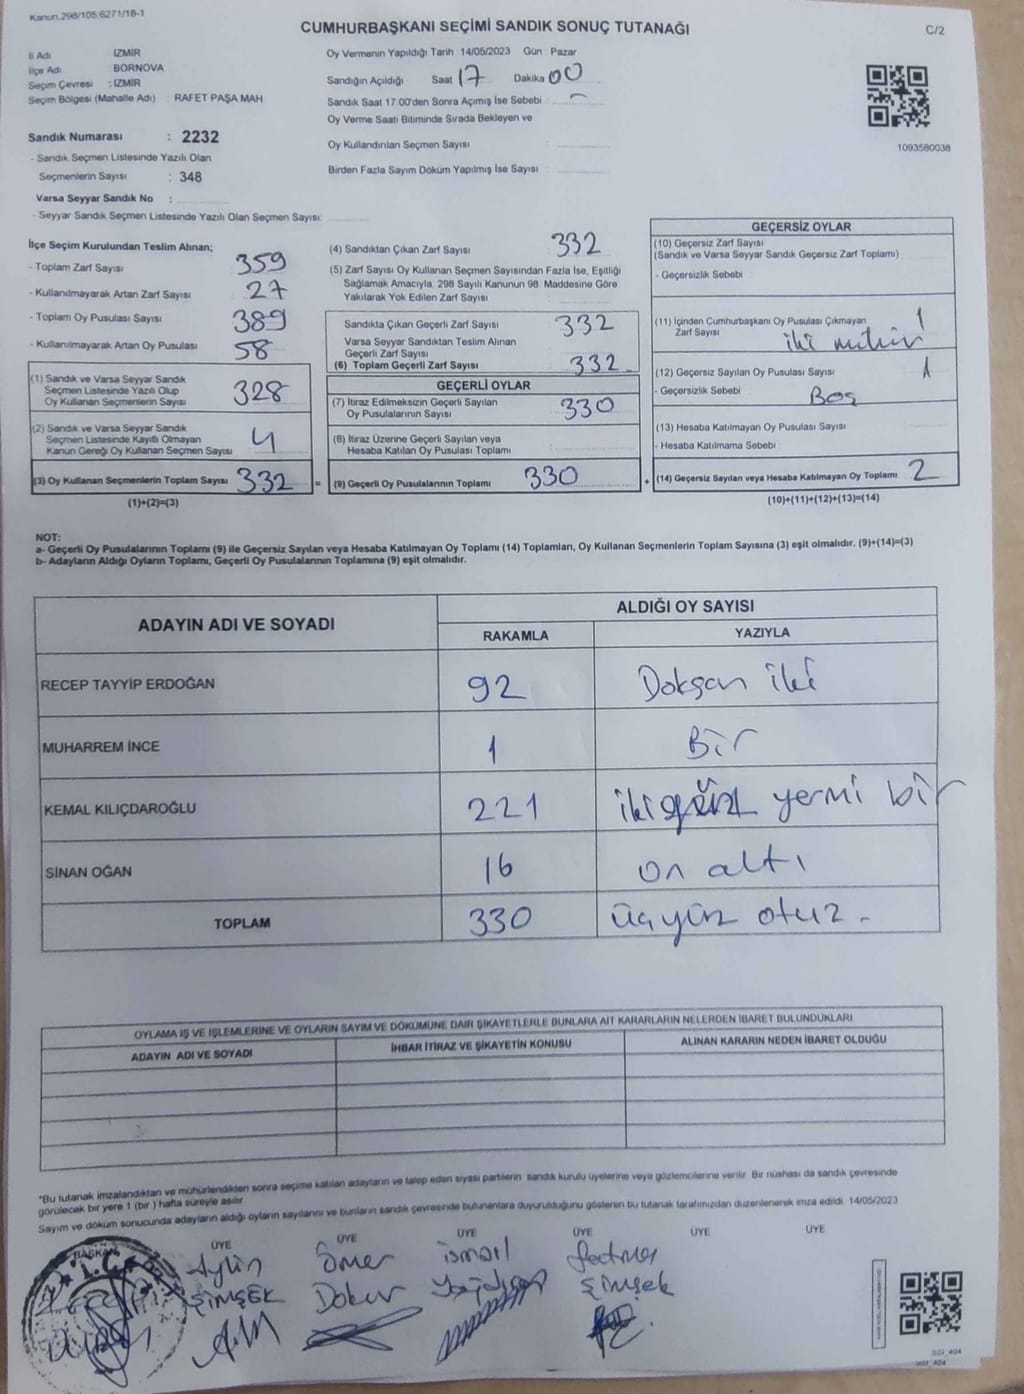 Kanun.298/105;6271/18-1
CUMHURBAŞKANI SEÇİMİ SANDIK SONUÇ TUTANAĞI
C/2
İl Adı İZMİR
İlçe Adı BORNOVA
Seçim Çevresi : İZMİR
Seçim Bölgesi (Mahalle Adı) : RAFET PAŞA MAH
Sandık Numarası : 2232
- Sandık Seçmen Listesinde Yazılı Olan
Seçmenlerin Sayısı : 348
Varsa Seyyar Sandık No :
- Seyyar Sandık Seçmen Listesinde Yazılı Olan Seçmen Sayısı:
Oy Vermenin Yapıldığı Tarih 14/05/2023 Gün Pazar
Sandığın Açıldığı Saat 17 Dakika 00
Sandık Saat 17 00'den Sonra Açımış İse Sebebi :
Oy Verme Saati Bitiminde Sırada Bekleyen ve
Oy Kullandırılan Seçmen Sayısı :
Birden Fazla Sayım Döküm Yapılmış İse Sayısı :
1093580038
İlçe Seçim Kurulundan Teslim Alınan;
- Toplam Zarf Sayısı 359
- Kullanılmayarak Artan Zarf Sayısı 27
- Toplam Oy Pusulası Sayısı 389
- Kullanılmayarak Artan Oy Pusulası 58
(1) Sandık ve Varsa Seyyar Sandık
Seçmen Listesinde Yazılı Olup
Oy Kullanan Seçmenlerin Sayısı 328
(2) Sandık ve Varsa Seyyar Sandık
Seçmen Listesinde Kayıtlı Olmayan
Kanun Gereği Oy Kullanan Seçmen Sayısı 4
(3) Oy Kullanan Seçmenlerin Toplam Sayısı 332 =
(1)+(2)=(3)
(4) Sandıktan Çıkan Zarf Sayısı 332
(5) Zarf Sayısı Oy Kullanan Seçmen Sayısından Fazla İse, Eşitliği
Sağlamak Amacıyla, 298 Sayılı Kanunun 98. Maddesine Göre
Yakılarak Yok Edilen Zarf Sayısı
Sandıkta Çıkan Geçerli Zarf Sayısı 332
Varsa Seyyar Sandıktan Teslim Alınan
Geçerli Zarf Sayısı
(6) Toplam Geçerli Zarf Sayısı 332
GEÇERLİ OYLAR
(7) İtiraz Edilmeksizin Geçerli Sayılan
Oy Pusulalarının Sayısı 330
(8) İtiraz Üzerine Geçerli Sayılan veya
Hesaba Katılan Oy Pusulası Toplamı
(9) Geçerli Oy Pusulalarının Toplamı 330 +
GEÇERSİZ OYLAR
(10) Geçersiz Zarf Sayısı
(Sandık ve Varsa Seyyar Sandık Geçersiz Zarf Toplamı)
- Geçersizlik Sebebi
(11) İçinden Cumhurbaşkanı Oy Pusulası Çıkmayan 1
Zarf Sayısı iki mühür
(12) Geçersiz Sayılan Oy Pusulası Sayısı 1
- Geçersizlik Sebebi Boş
(13) Hesaba Katılmayan Oy Pusulası Sayısı
- Hesaba Katılmama Sebebi
(14) Geçersiz Sayılan veya Hesaba Katılmayan Oy Toplamı 2
(10)+(11)+(12)+(13)=(14)
NOT:
a- Geçerli Oy Pusulalarının Toplamı (9) ile Geçersiz Sayılan veya Hesaba Katılmayan Oy Toplamı (14) Toplamları, Oy Kullanan Seçmenlerin Toplam Sayısına (3) eşit olmalıdır. (9)+(14)=(3)
b- Adayların Aldığı Oyların Toplamı, Geçerli Oy Pusulalarının Toplamına (9) eşit olmalıdır.
ADAYIN ADI VE SOYADI
ALDIĞI OY SAYISI
RAKAMLA YAZIYLA
RECEP TAYYİP ERDOĞAN 92 Doksan iki
MUHARREM İNCE 1 Bir
KEMAL KILIÇDAROĞLU 221 ikiyüz yermi bir
SİNAN OĞAN 16 on altı
TOPLAM 330 üçyüz otuz.
OYLAMA İŞ VE İŞLEMLERİNE VE OYLARIN SAYIM VE DÖKÜMÜNE DAİR ŞİKAYETLERLE BUNLARA AİT KARARLARIN NELERDEN İBARET BULUNDUKLARI
ADAYIN ADI VE SOYADI İHBAR İTİRAZ VE ŞİKAYETİN KONUSU ALINAN KARARIN NEDEN İBARET OLDUĞU
"Bu tutanak imzalandıktan ve mühürlendikten sonra seçime katılan adayların ve talep eden siyasi partilerin sandık kurulu üyelerine veya gözlemcilerine verilir. Bir nüshası da sandık çevresinde
görülecek bir yere 1 (bir ) hafta süreyle asılır.
Sayım ve döküm sonucunda adayların aldığı oyların sayılarını ve bunların sandık çevresinde bulunanlara duyurulduğunu gösteren bu tutanak tarafımızdan düzenlenerek imza edildi. 14/05/2023
BAŞKAN ÜYE ÜYE ÜYE ÜYE ÜYE ÜYE
T.C.
Aylin Ömer ismail Fatma
ŞİMŞEK Dokur Şimşek